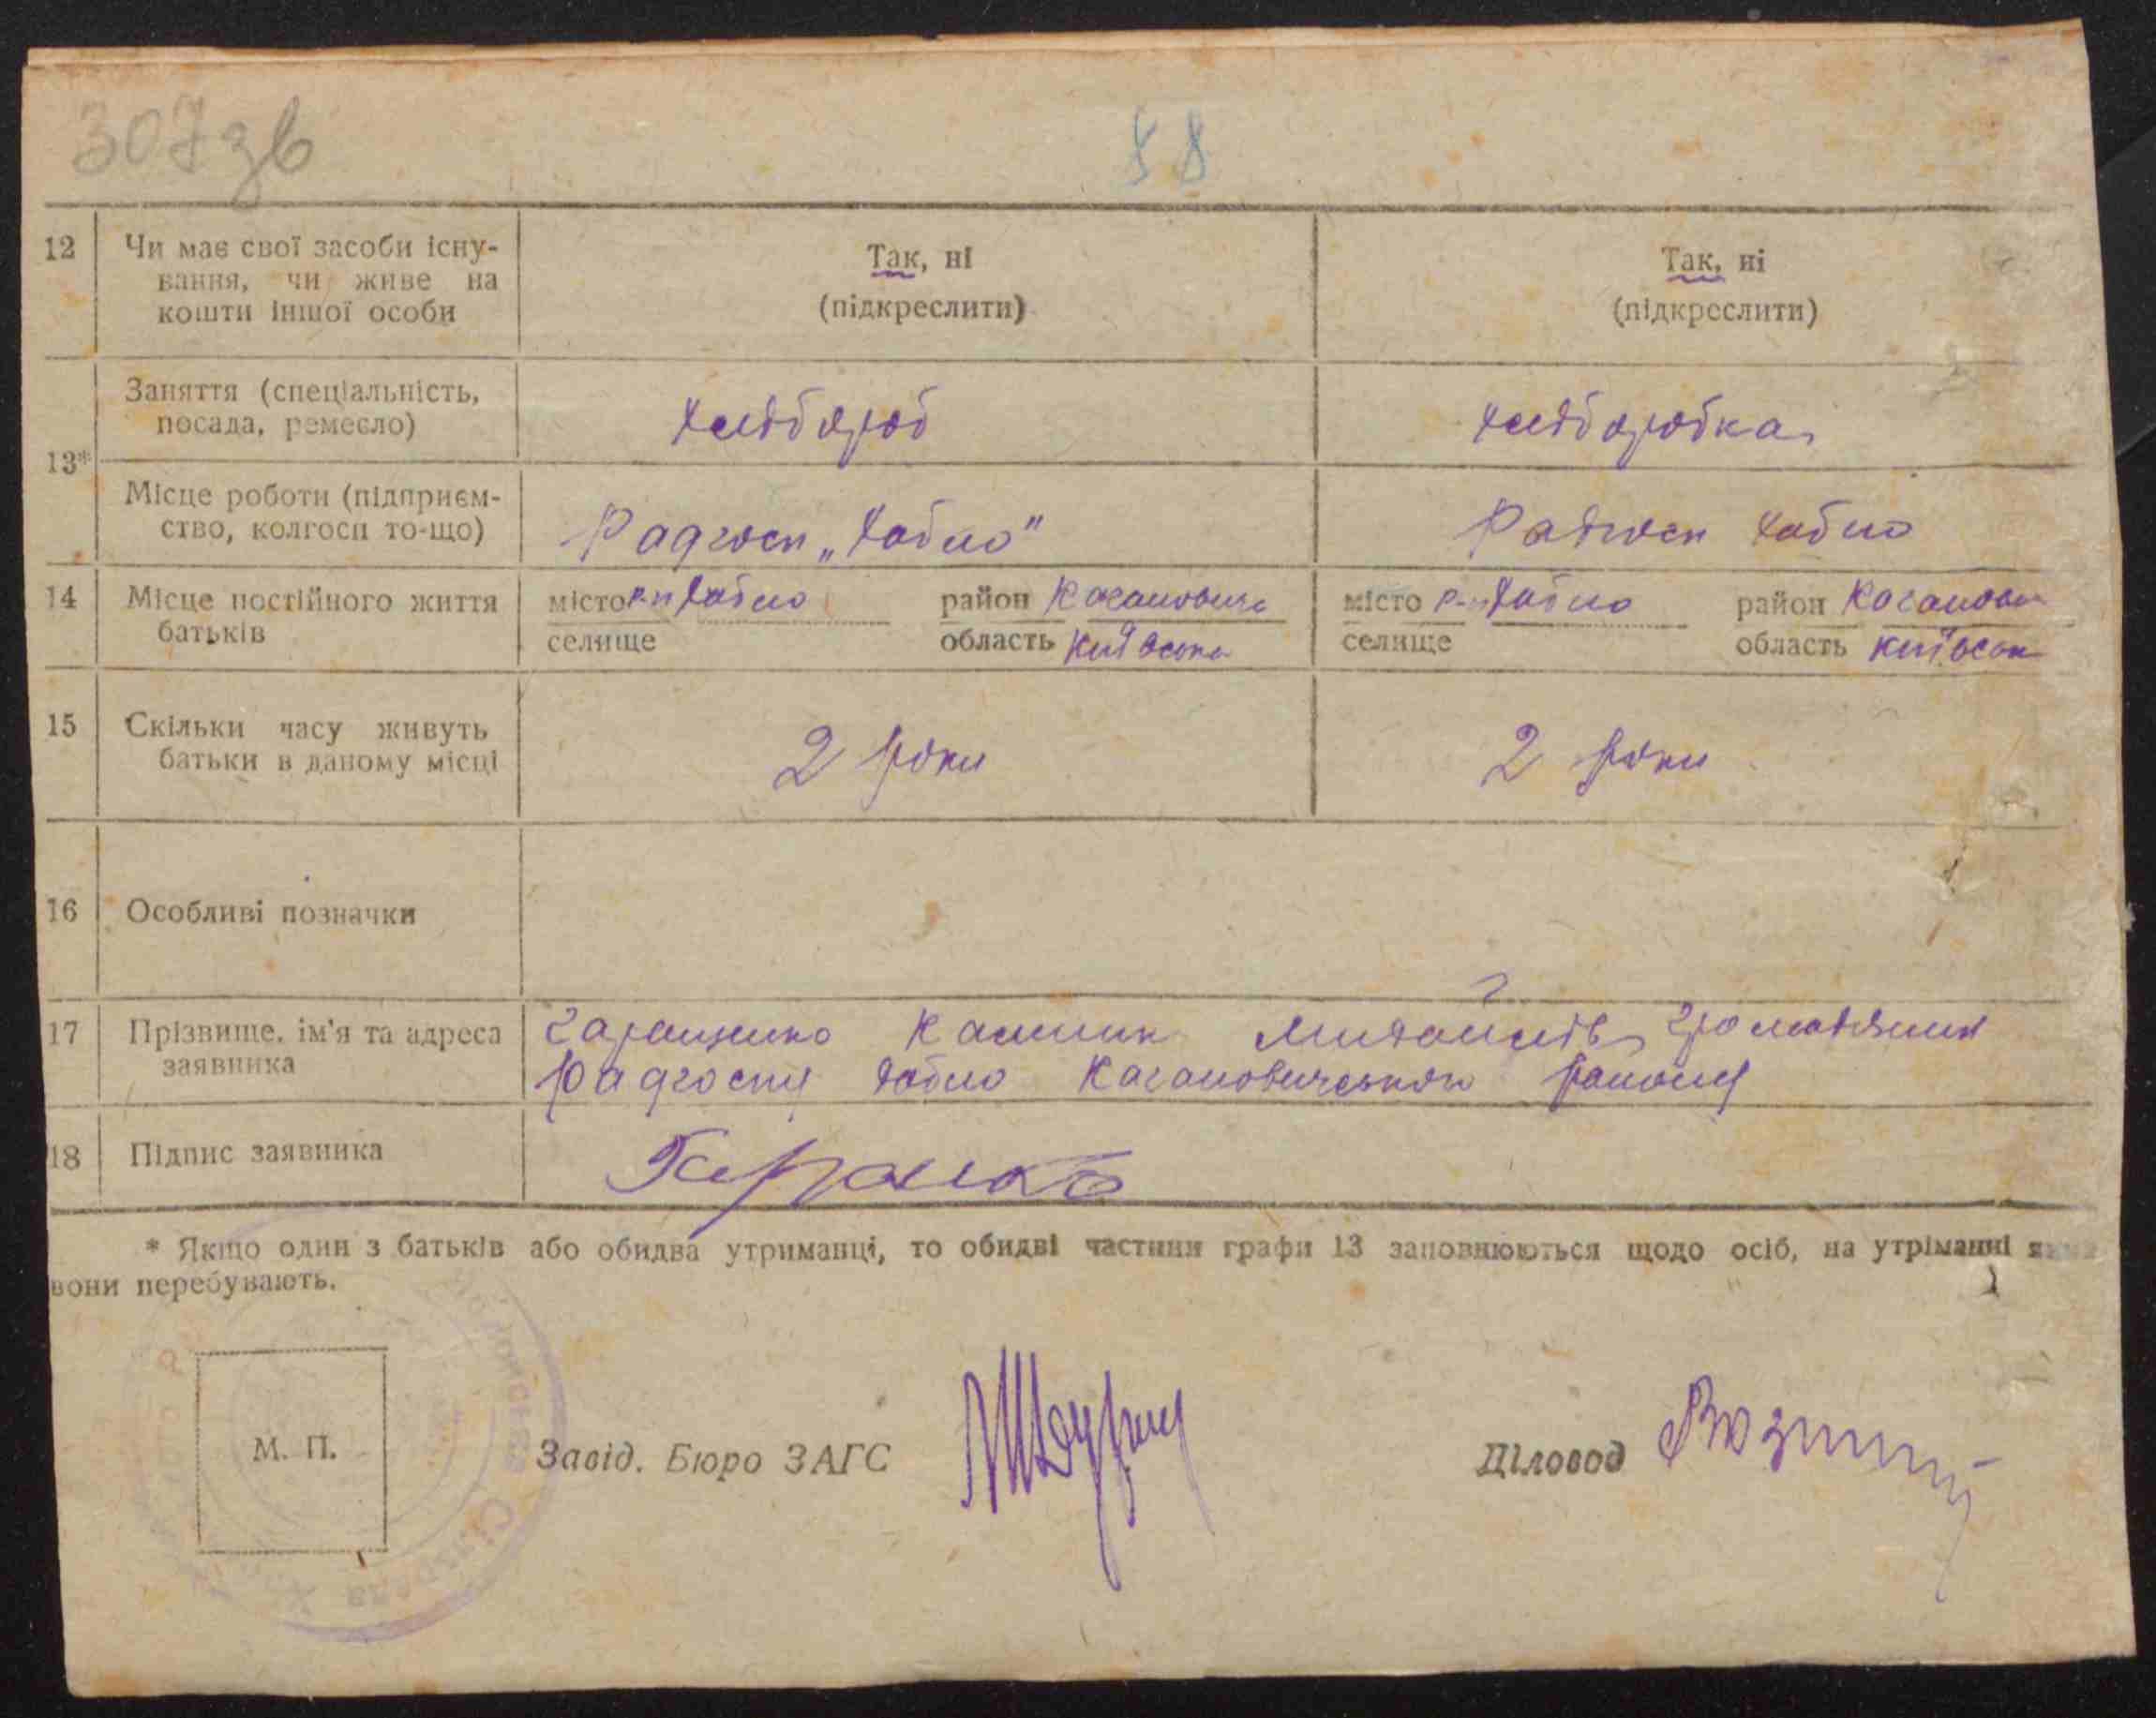 307зв
88
12 Чи має свої засоби існу-
вання, чи живе на
кошти іншої особи
Так, ні
(підкреслити)
Так, ні
(підкреслити)
13* Заняття (спеціальність,
посада, ремесло)
хлібороб
хліборобка
Місце роботи (підприєм-
ство, колгосп то-що)
Радгосп „Хабно"
Радгосп Хабно
14 Місце постійного життя
батьків
місто Хабно район Кагановича
селище область Київська
місто Хабно район Каганови
селище область Київськ
15 Скільки часу живуть
батьки в даному місці
2 роки
2 роки
16 Особливі позначки
17 Прізвище, ім'я та адреса
заявника
Гаращенко Калинк Михайлів громадянин
Радгоспу Хабно Кагановическои району
18 Підпис заявника
* Якщо один з батьків або обидва утриманці, то обидві частини графи 13 заповнюються щодо осіб, на утріманні яких
вони перебувають.
М. П.
Завід. Бюро ЗАГС
Діловод